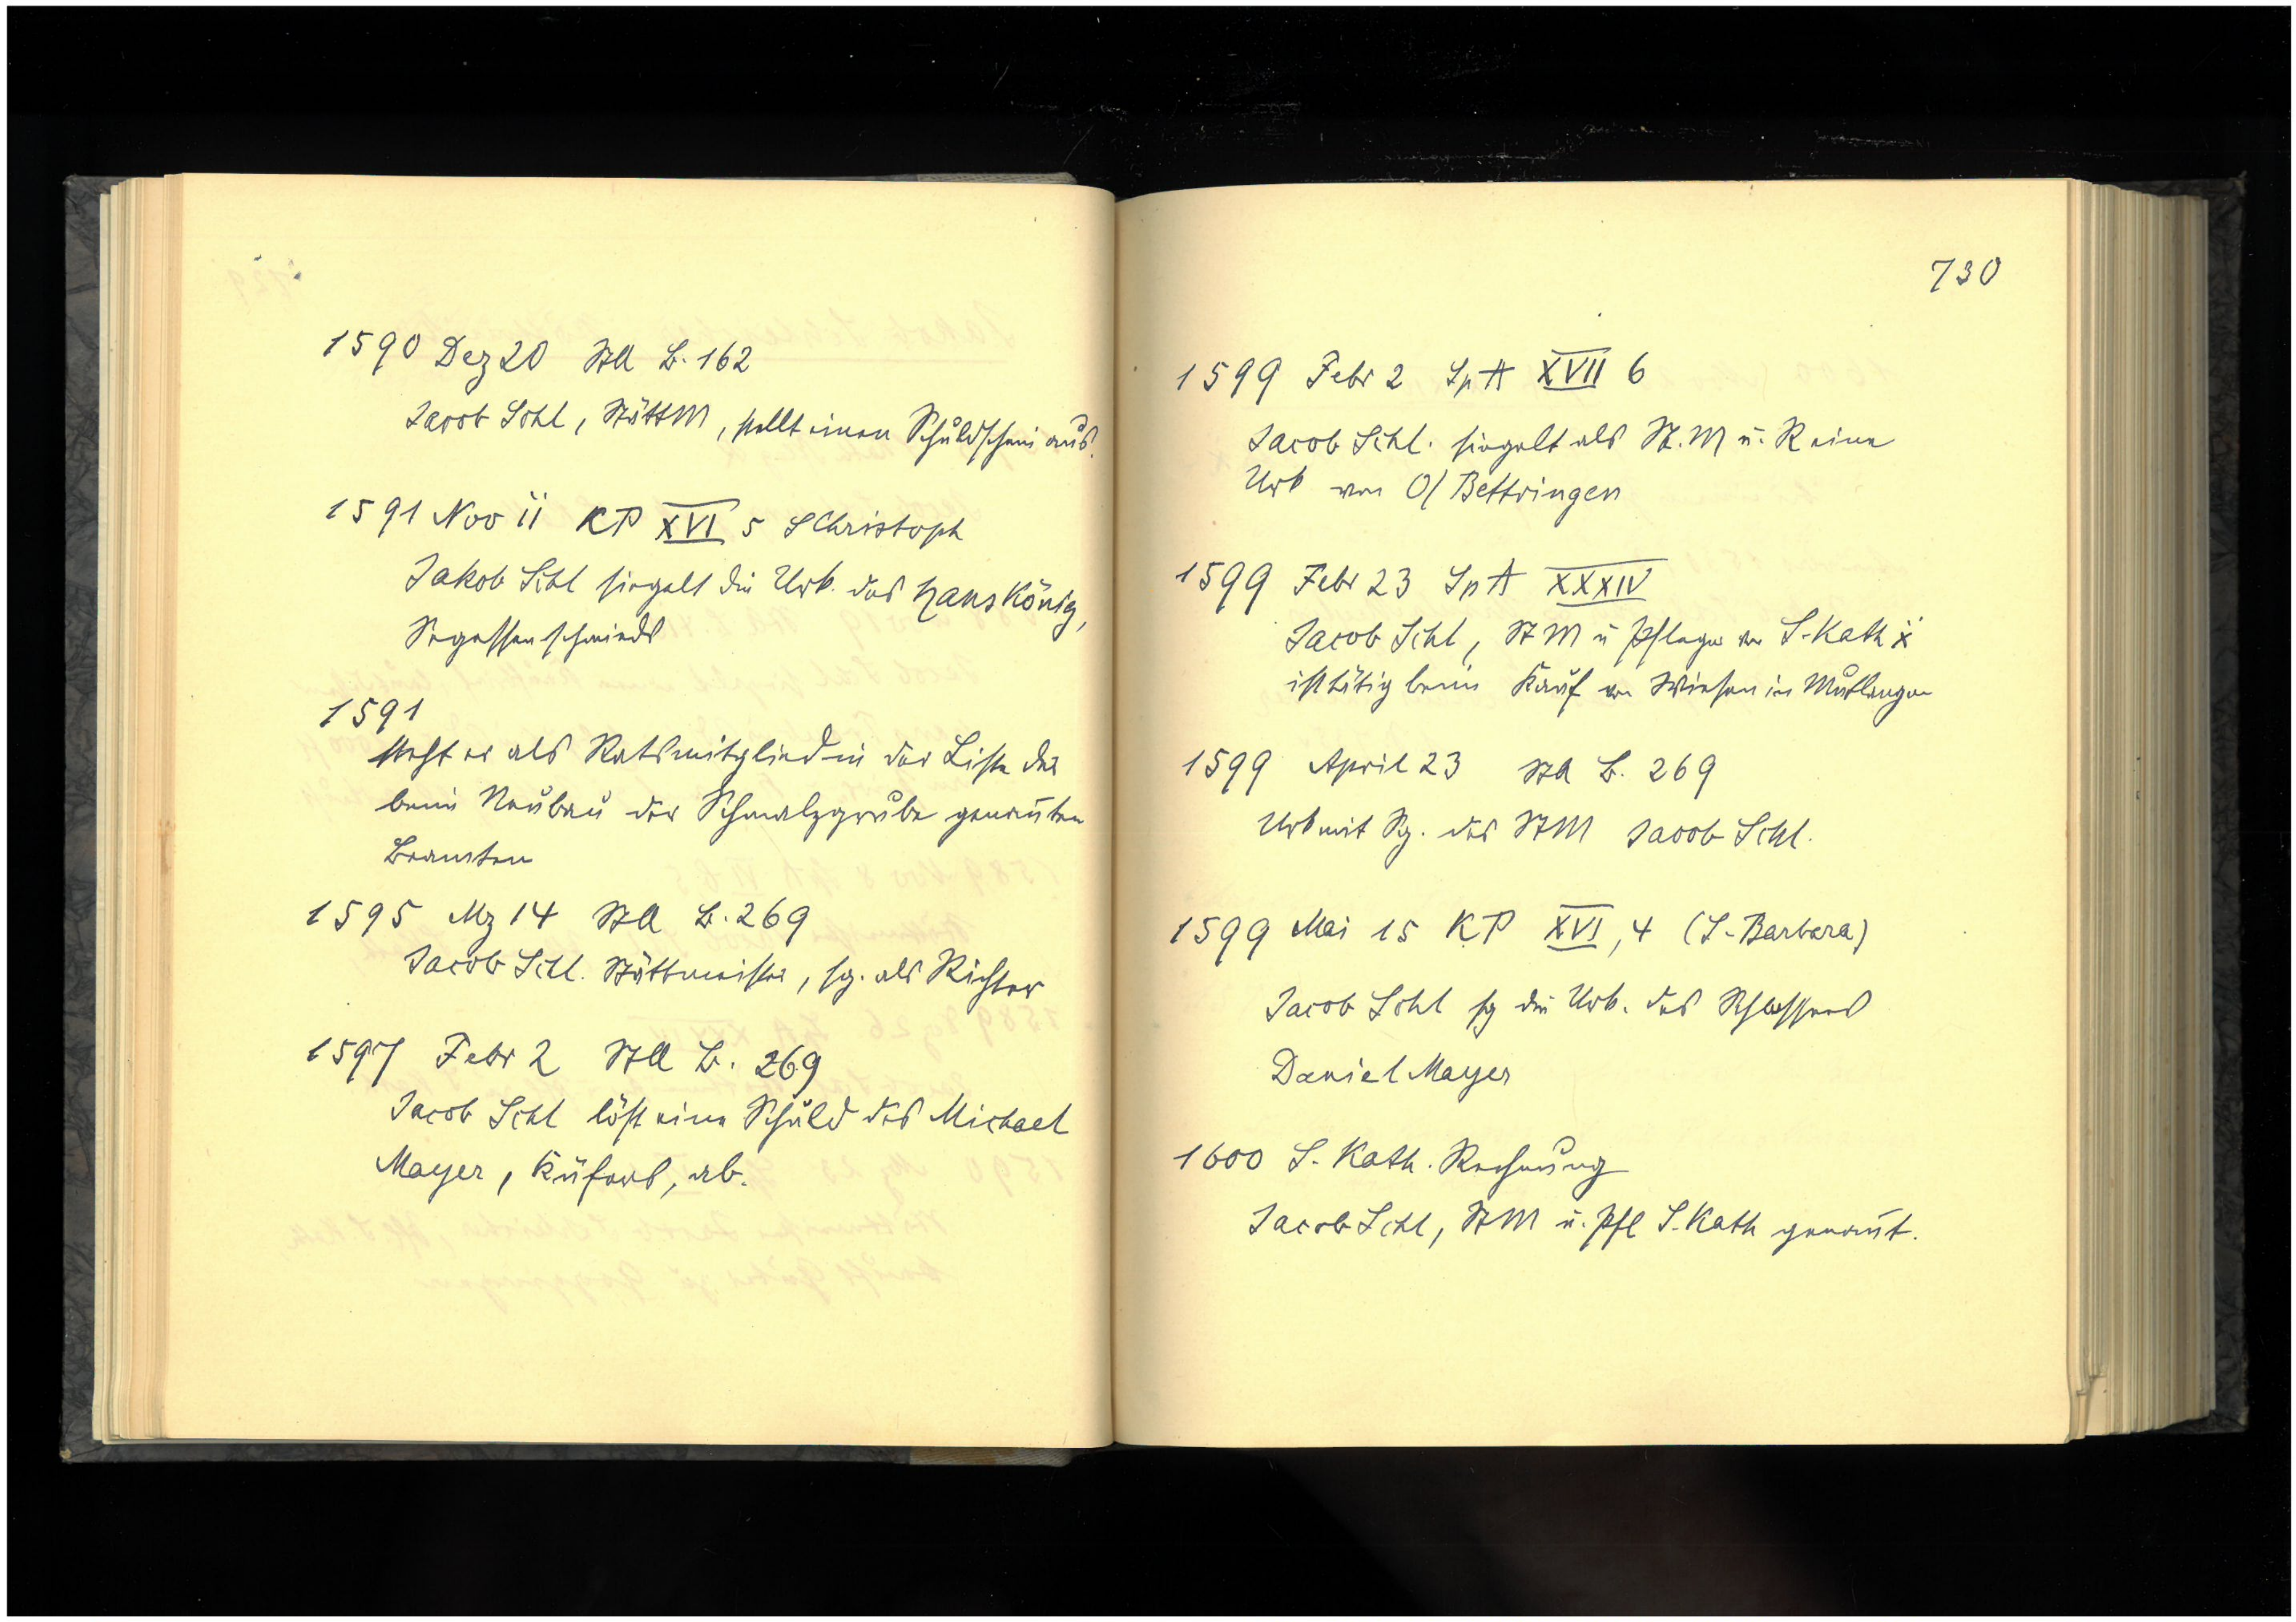 1590 Dez 20 StA B. 162
Jacob Schl, StättM, stellt einen Schuldschein aus.
1591 Nov 11 KP XVI 5 S Christoph
Jakob Schl siegelt die Urk. des Hans König,
Segessenschmieds
1591
steht er als Ratsmitglied in der Liste der
beim Neubau der Schmalzgrube genannten
Beamten
1595 Mz 14 StA B. 269
Jacob Schl. Stättmeister, sg. als Richter
1597 Febr 2 StA B. 269
Jacob Schl löst eine Schuld des Michael
Mayer, Küfers, ab.
730
1599 Febr 2 SpA XVII 6
Jacob Schl. siegelt als St.M u. R eine
Urk von O/Bettringen
1599 Febr 23 SpA XXXIV
Jacob Schl, StM u Pfleger von S. Kath
ist tätig beim Kauf von Wiesen in Mutlangen
1599 April 23 StA B. 269
Urk mit Sg. des StM Jacob Schl.
1599 Mai 15 KP XVI, 4 (S. Barbara)
Jacob Schl sg die Urk. des Schlossers
Daniel Mayer
1600 S. Kath. Rechnung
Jacob Schl, StM u. Pfl S. Kath genannt.